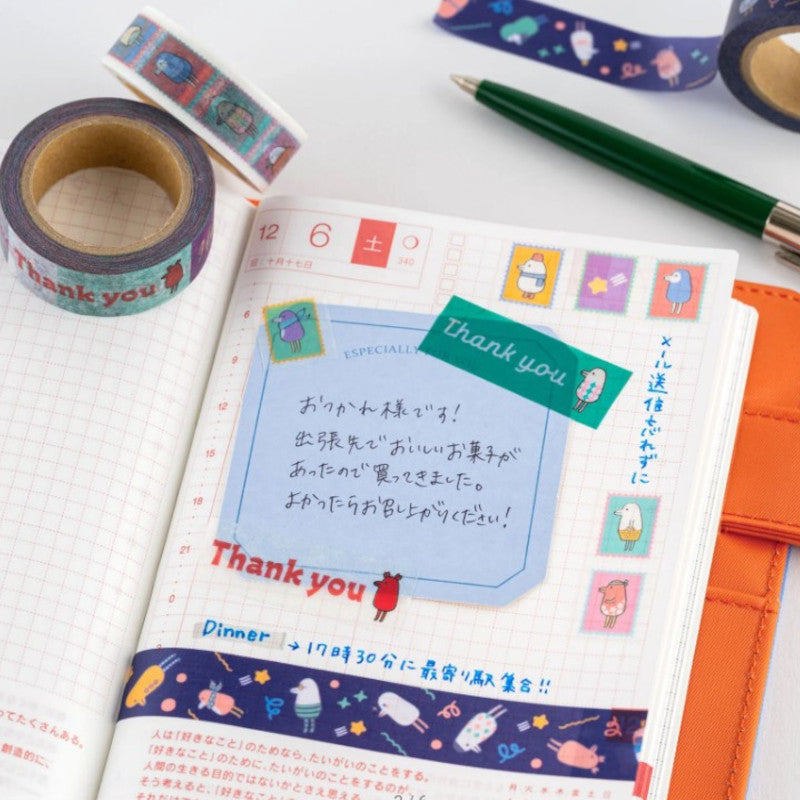 Thank you
12 6 土
旧：十月十七日 340
ESPECIALLY
Thank you
おつかれ様です！
出張先でおいしいお菓子が
あったので買ってきました。
よかったらお召し上がりください！
Thank you
メール送信忘れずに
6
9
12
15
18
21
0
Dinner →17時30分に最寄り駅集合!!
人は「好きなこと」のためなら、たいがいのことをする。
「好きなこと」のために、たいがいのことをするのが、
人間の生きる目的ではないかとさえ思える。
そう考えると、「好きなこと」
ってたくさんある。
創造的に、
月火水木金土日